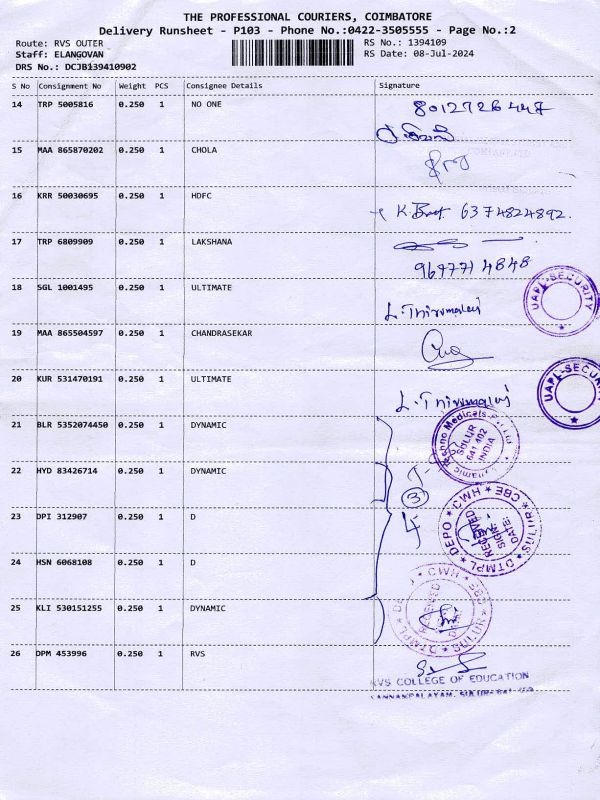 THE PROFESSIONAL COURIERS, COIMBATORE
Delivery Runsheet - P103 - Phone No.:0422-3505555 - Page No.:2
Route: RVS OUTER RS No.: 1394109
Staff: ELANGOVAN RS Date: 08-Jul-2024
DRS No.: DCJB139410902
S No Consignment No Weight PCS Consignee Details Signature
14 TRP 5005816 0.250 1 NO ONE 8012726447
15 MAA 865870202 0.250 1 CHOLA
16 KRR 50030695 0.250 1 HDFC 6374824892.
17 TRP 6809909 0.250 1 LAKSHANA
9677714848
18 SGL 1001495 0.250 1 ULTIMATE L.Thirumalai
UAPL-SECURITY
19 MAA 865504597 0.250 1 CHANDRASEKAR
20 KUR 531470191 0.250 1 ULTIMATE L.Thirumalai
UAPL-SECURITY
21 BLR 5352074450 0.250 1 DYNAMIC
Techno Medicals
SULUR
641 402
INDIA
22 HYD 83426714 0.250 1 DYNAMIC
3
23 DPI 312907 0.250 1 D
DTMPL DEPO * CWH * HMC * CBE * SULUR
RECEIVED
SIGN:
DATE:
24 HSN 6068108 0.250 1 D
25 KLI 530151255 0.250 1 DYNAMIC
26 DPM 453996 0.250 1 RVS
RVS COLLEGE OF EDUCATION
KANNAMPALAYAM, SULUR